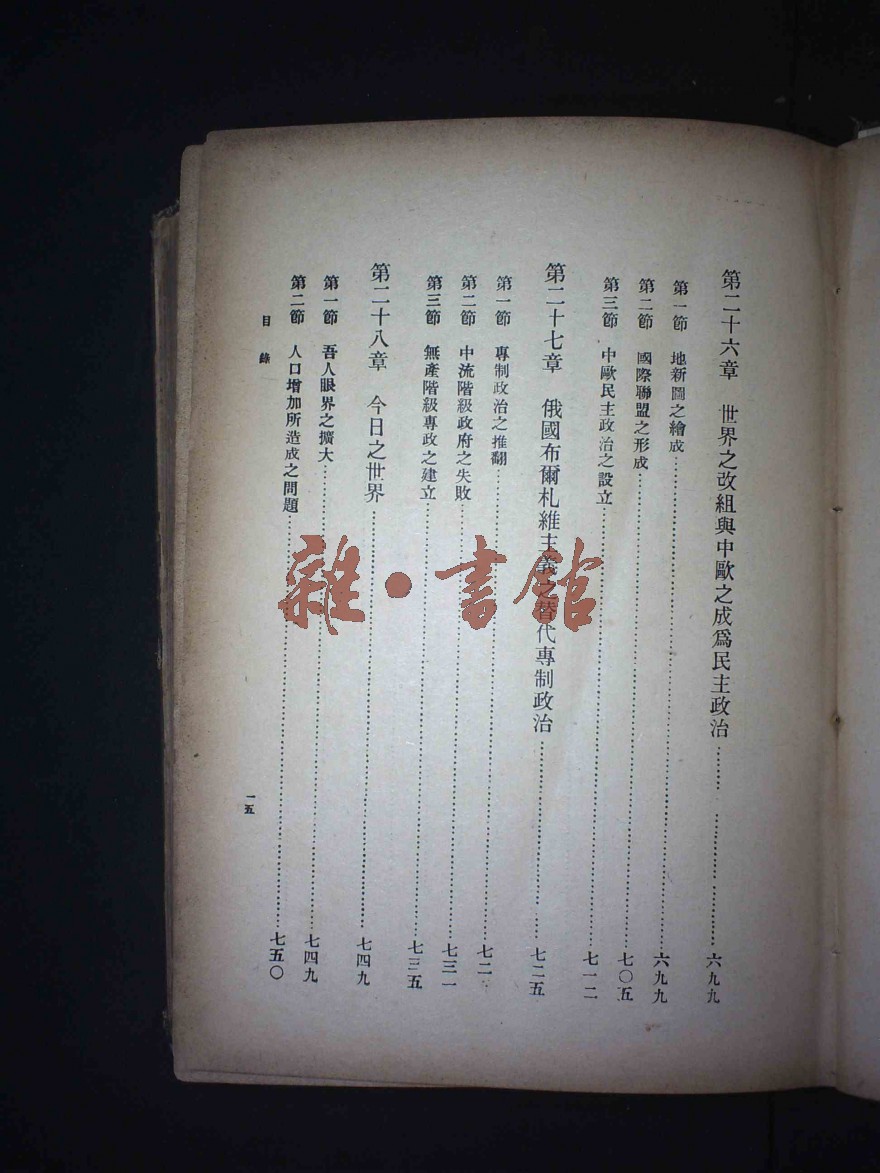 第二十六章　世界之改組與中歐之成爲民主政治……六九九
第一節　地新圖之繪成……六九九
第二節　國際聯盟之形成……七〇五
第三節　中歐民主政治之設立……七一二
第二十七章　俄國布爾札維主義之替代專制政治……七二五
第一節　專制政治之推翻……七二
第二節　中流階級政府之失敗……七三一
第三節　無產階級專政之建立……七三五
第二十八章　今日之世界……七四九
第一節　吾人眼界之擴大……七四九
第二節　人口增加所造成之問題……七五〇
目錄
一五
雜·書館